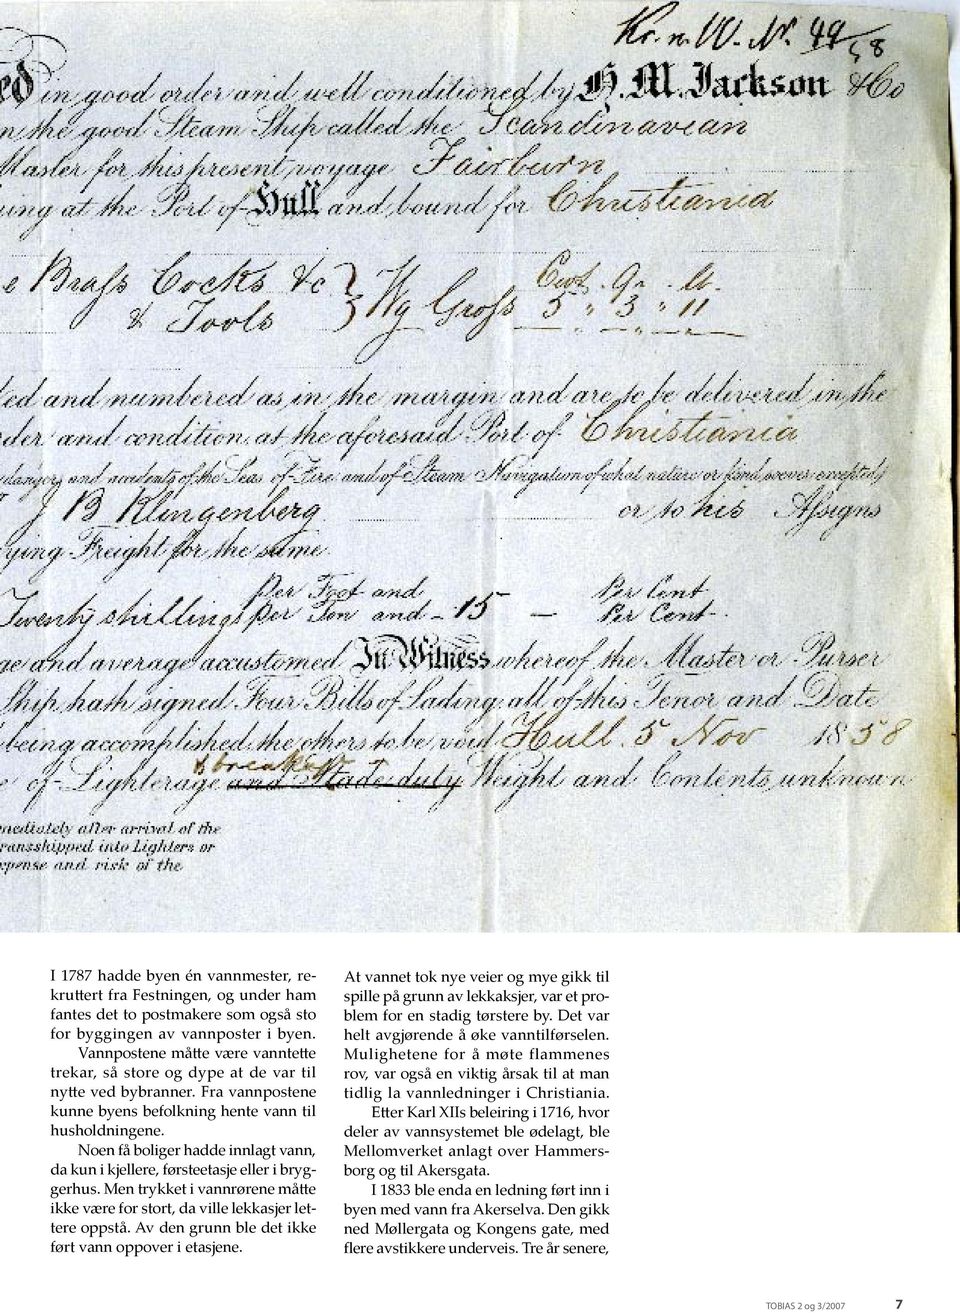 Kr. n. W. Nr. 49/58
in good order and well conditioned by H. M. Jackson & Co
n the good Steam Ship called the Scandinavian
Master for this present voyage Fairburn
ing at the Port of Hull and bound for Christiania
e Brass Cocks &c } Wg Gross Cwt. Qr. lb.
& Tools 5 " 3 " 11
ed and numbered as in the margin and are to be delivered in the
der and condition at the aforesaid Port of Christiania
dangers and accidents of the Seas of Fire and of Steam Navigation of what nature or kind soever excepted)
J B Klingenberg or to his Assigns
ying Freight for the same
Twenty shillings per Foot and Per Cent
per Ton and - 15 — Per Cent
ge and average accustomed In Witness whereof the Master or Purser
Ship hath signed Four Bills of Lading all of this Tenor and Date
being accomplished the others to be void Hull 5 Nov 1858
& breakage
e of Lighterage and Stade duty Weight and Contents unknown
mediately after arrival of the
ransshipped into Lighters or
xpense and risk of the
I 1787 hadde byen én vannmester, re-
kruttert fra Festningen, og under ham
fantes det to postmakere som også sto
for byggingen av vannposter i byen.
Vannpostene måtte være vanntette
trekar, så store og dype at de var til
nytte ved bybranner. Fra vannpostene
kunne byens befolkning hente vann til
husholdningene.
Noen få boliger hadde innlagt vann,
da kun i kjellere, førsteetasje eller i bryg-
gerhus. Men trykket i vannrørene måtte
ikke være for stort, da ville lekkasjer let-
tere oppstå. Av den grunn ble det ikke
ført vann oppover i etasjene.
At vannet tok nye veier og mye gikk til
spille på grunn av lekkaksjer, var et pro-
blem for en stadig tørstere by. Det var
helt avgjørende å øke vanntilførselen.
Mulighetene for å møte flammenes
rov, var også en viktig årsak til at man
tidlig la vannledninger i Christiania.
Etter Karl XIIs beleiring i 1716, hvor
deler av vannsystemet ble ødelagt, ble
Mellomverket anlagt over Hammers-
borg og til Akersgata.
I 1833 ble enda en ledning ført inn i
byen med vann fra Akerselva. Den gikk
ned Møllergata og Kongens gate, med
flere avstikkere underveis. Tre år senere,
TOBIAS 2 og 3/2007 7